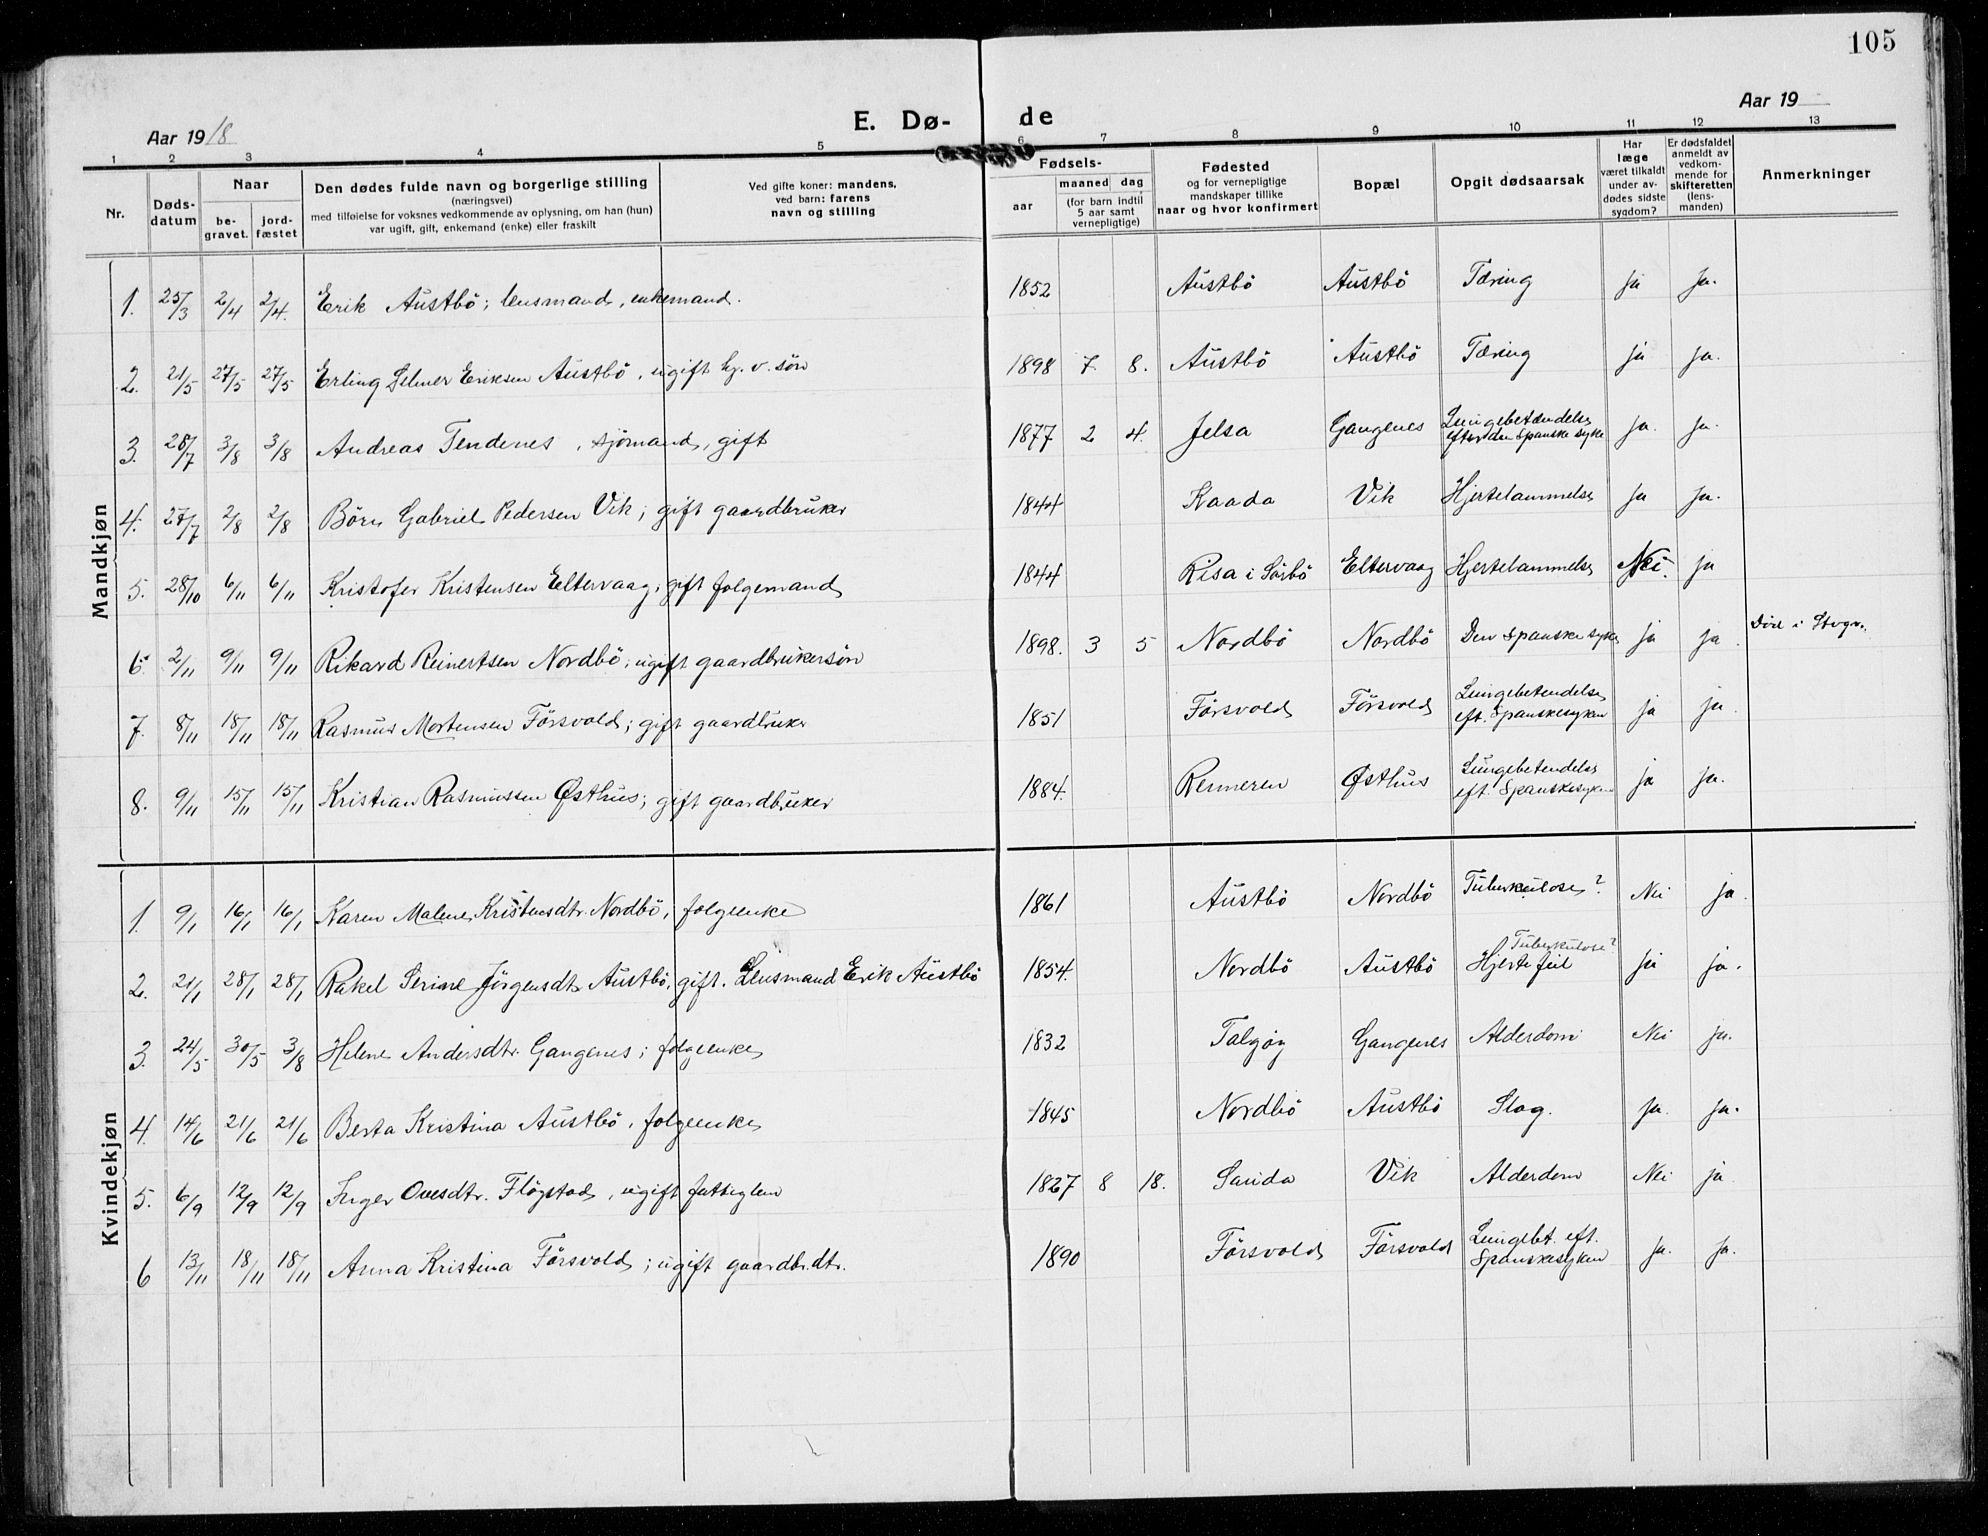 105
Aar 1918
E. Dø-
de
Aar 19
1 2 3 4 5 6 7 8 9 10 11 12 13
Nr.
Døds-
datum
Naar
be-
gravet.
jord-
fæstet
Den dødes fulde navn og borgerlige stilling
(næringsvei)
med tilføielse for voksnes vedkommende av oplysning, om han (hun)
var ugift, gift, enkemand (enke) eller fraskilt
Ved gifte koner: mandens,
ved barn: farens
navn og stilling
Fødsels-
aar
maaned dag
(for barn indtil
5 aar samt
vernepligtige)
Fødested
og for vernepligtige
mandskaper tillike
naar og hvor konfirmert
Bopæl
Opgit dødsaarsak
Har
læge
været tilkaldt
under av-
dødes sidste
sygdom?
Er dødsfaldet
anmeldt av
vedkom-
mende for
skifteretten
(lens-
manden)
Anmerkninger
Mandkjøn
1. 25/3 2/4 2/4. Erik Austbö; lensmand, enkemand. 1852 Austbö Austbö Tæring ja ja.
2. 21/5 27/5 27/5 Erling Selmer Eriksen Austbö, ugift hg. v. sön 1898 7. 8. Austbö Austbö Tæring ja ja.
3. 28/7 3/8 3/8 Andreas Tendenes, sjömand, gift 1877 2 4. Jelsa Gangenes Lungebetændelse
efter den spanske syke ja. ja.
4. 27/7 2/8 2/8 Börn Gabriel Pedersen Vik; gift gaardbruker 1844 Kaada Vik Hjertelammelse ja ja.
5. 28/10 6/11 6/11 Kristofer Kristensen Eltervaag; gift folgemand 1844 Risa i Sörbö Eltervaag Hjertelammelse Nei. ja
6. 2/11 9/11 9/11 Rikard Reinertsen Nordbö; ugift gaardbrukersön 1898. 3 5 Nordbö Nordbö Den spanske syke ja ja. Död i
7. 8/11 18/11 18/11 Rasmus Mortensen Försvold; gift gaardbruker 1851 Försvold Försvold Lungebetendelse
eft. Spanskesyken ja ja.
8. 9/11 15/11 15/11 Kristian Rasmussen Østhus; gift gaardbruker 1884. Renneren Østhus Lungebetendelse
eft. Spanskesyken ja ja.
Kvindekjøn
1. 9/1 16/1 16/1 Karen Malene Kristensdtr. Nordbö, folgeenke 1861 Austbö Nordbö Tuberkulose? Nei ja.
2. 21/1 28/1 28/1 Rakel Serine Jörgensdtr Austbö, gift. Lensmand Erik Austbö 1854. Nordbö Austbö Tuberkulose?
Hjertefeil ja ja.
3. 24/5 30/5 3/8 Helene Andersdtr. Gangenes; folgeenke 1832 Talgöy Gangenes Alderdom Nei ja.
4. 14/6 21/6 21/6 Berta Kristina Austbö, folgeenke 1845 Nordbö Austbö Slag. ja. ja.
5. 6/9 12/9 12/9 Inger Ovesdtr. Flögstad, ugift fattiglem 1827 8 18. Sauda Vik Alderdom Nei ja
6 13/11 18/11 18/11 Anna Kristina Försvold; ugift gaardbr.dtr. 1890 Försvold Försvold Lungebt. eft.
Spanskesyken ja. ja.